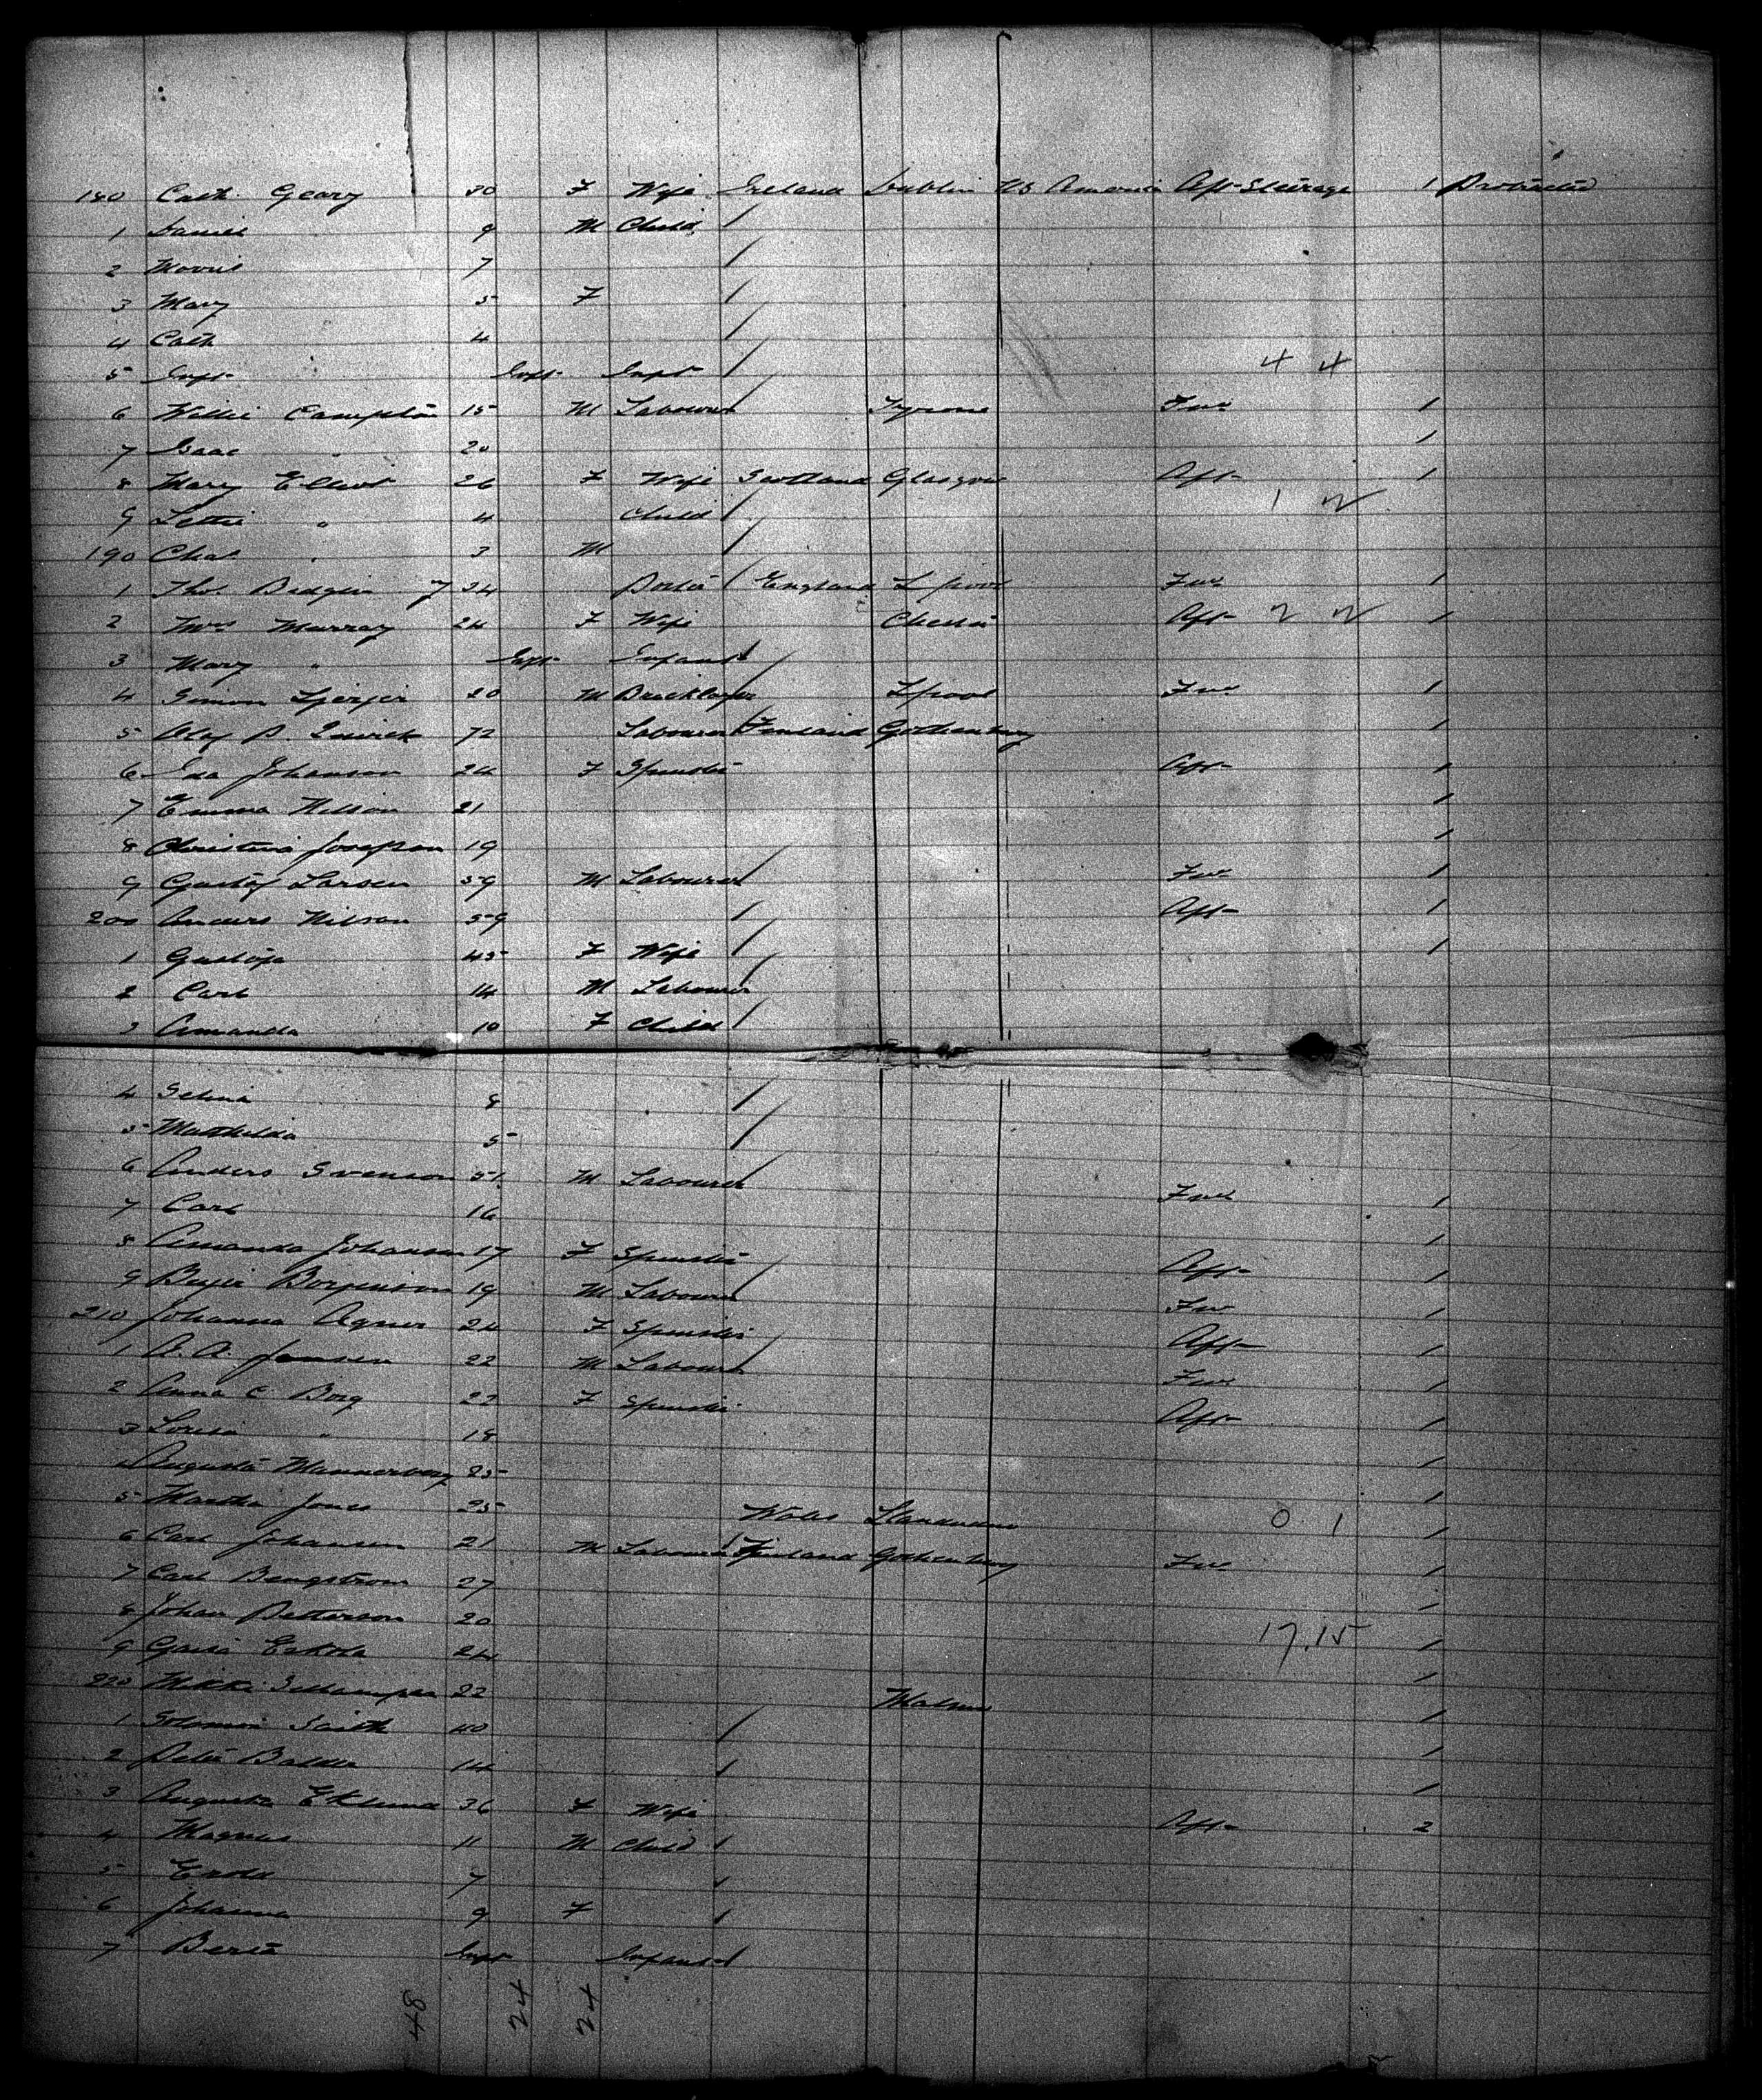 180 Cath. Geary 30 F Wife Ireland Dublin US America Aft Steerage 1 Protracted
1 Daniel 9 M Child /
2 Morris 7 /
3 Mary 5 F /
4 Cath 4 /
5 Inft Inft Inft /
4 4
6 Willie Campton 15 M Labourer Tyrone Fwd 1
7 Isaac " 20 1
8 Mary Elliot 26 F Wife Scotland Glasgow Aft 1
1 2
9 Lettie " 4 Child /
190 Chas " 3 M /
1 Thos. 34 England L'pool Fwd 1
2 Mrs Murray 24 F Wife Chester Aft 2 2 1
3 Mary " Inft Infant
4 Simon 20 M Bricklayer L'pool Fwd 1
5 Olaf P. 72 Labourer Finland Gothenburg 1
6 Ida Johanson 24 F Spinster Aft 1
7 Emma Nelson 21 1
8 Christina Josefson 19 1
9 Gustaf Larsen 59 M Labourer Fwd 1
200 Anders Nilson 59 / Aft 1
1 45 F Wife / 1
2 Carl 14 M Labourer
3 Amanda 10 F Child /
4 Selma 8 /
5 Mathilda 5 /
6 Anders Svenson 51 M Labourer Fwd 1
7 Carl 16 1
8 Amanda Johanson 17 F Spinster Aft 1
9 19 M Labourer Fwd 1
210 Johanna Agner 24 F Spinster Aft 1
1 A. A. Jansen 22 M Labourer Fwd 1
2 Anna C Borg 22 F Spinster Aft 1
3 Lovisa " 18 1
4 Augusta Mannerberg 25 1
5 Martha Jones 25 Wales Llandudno 0 1 1
6 Carl Johanson 21 M Labourer Finland Gothenburg Fwd 1
7 Carl Bengstrom 27 1
8 Johan Petterson 20 17.15 1
9 24 1
220 22 Malmo 1
1 Solomon 40 / 1
2 14 / 1
3 Augusta Eklund 36 F Wife Aft 2
4 Magnus 11 M Child /
5 7 /
6 Johanna 9 F /
7 Berta Inft Infant
48 42 42